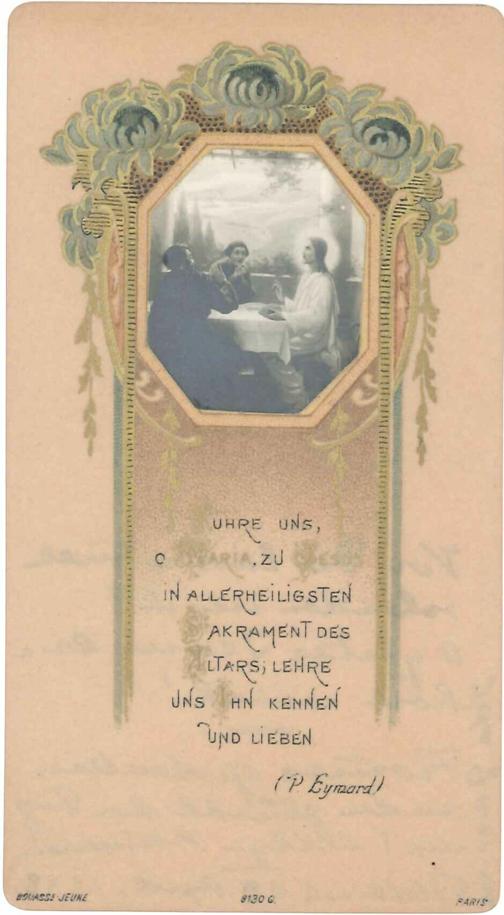 FÜHRE UNS,
O MARIA, ZU JESUS
IN ALLERHEILIGSTEN
SAKRAMENT DES
ALTARS; LEHRE
UNS IHN KENNEN
UND LIEBEN
(P. Eymard)
BOUASSE-JEUNE
8130 G.
PARIS